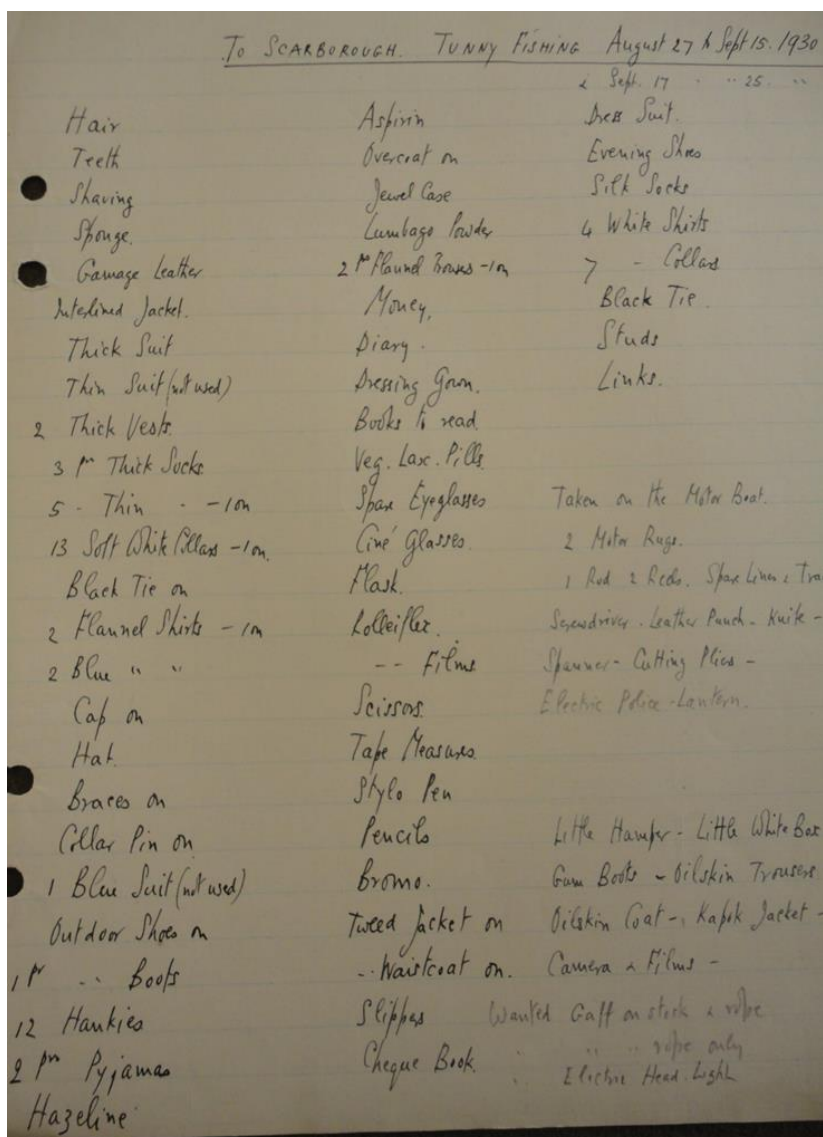 To Scarborough. Tunny Fishing August 27 to Sept 15. 1930
& Sept. 17 " " 25. "
Hair
Teeth
Shaving
Sponge.
Gamage Leather
Interlined Jacket.
Thick Suit
Thin Suit (not used)
2 Thick Vests.
3 pr Thick Socks
5 - Thin - - 1 on
13 Soft White Collars - 1 on.
Black Tie on
2 Flannel Shirts - 1 on
2 Blue " "
Cap on
Hat.
Braces on
Collar Pin on
1 Blue Suit (not used)
Outdoor Shoes on
1 pr " Boots
12 Hankies
2 prs Pyjamas
Hazeline
Aspirin
Overcoat on
Jewel Case
Lumbago Powder
2 pr Flannel Trousers - 1 on
Money,
Diary.
Dressing Gown.
Books to read.
Veg. Lax. Pills.
Spare Eyeglasses
Ciné Glasses.
Flask.
Rolleiflex.
-- Films
Scissors.
Tape Measures.
Stylo Pen
Pencils
Bromo.
Tweed Jacket on
-- Waistcoat on.
Slippers
Cheque Book.
Dress Suit.
Evening Shoes
Silk Socks
4 White Shirts
7 - Collars
Black Tie.
Studs
Links.
Taken on the Motor Boat.
2 Motor Rugs.
1 Rod 2 Reels. Spare Lines & Tra
Screwdriver - Leather Punch - Knife -
Spanner - Cutting Pliers -
Electric Police - Lantern.
Little Hamper - Little White Box
Gum Boots - Oilskin Trousers
Oilskin Coat - Kapok Jacket -
Camera & Films -
Wanted Gaff on stick & rope
" " " rope only
" Electric Head. Light